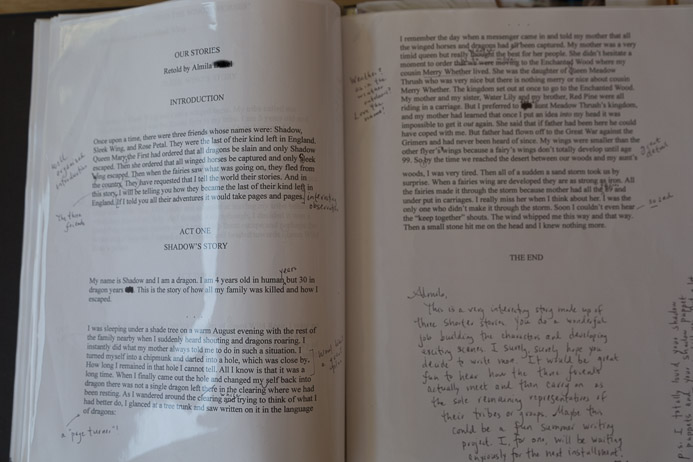 OUR STORIES
Retold by Almila
INTRODUCTION
Once upon a time, there were three friends whose names were: Shadow,
Sleek Wing, and Rose Petal. They were the last of their kind left in England.
Queen Mary the First had ordered that all dragons be slain and only Shadow
escaped. Then she ordered that all winged horses be captured and only Sleek
Wing escaped. Then when the fairies saw what was going on, they fled from
the country. They have requested that I tell the world their stories. And in
this story, I will be telling you how they became the last of their kind left in
England. If I told you all their adventures it would take pages and pages.
The three
friends
ACT ONE
SHADOW'S STORY
years
My name is Shadow and I am a dragon. I am 4 years old in human but 30 in
dragon years. This is the story of how all my family was killed and how I
escaped.
I was sleeping under a shade tree on a warm August evening with the rest of
the family nearby when I suddenly heard shouting and dragons roaring. I
instantly did what my mother always told me to do in such a situation. I
turned myself into a chipmunk and darted into a hole, which was close by.
How long I remained in that hole I cannot tell. All I know is that it was a
long time. When I finally came out the hole and changed my self back into
dragon there was not a single dragon left there in the clearing where we had
been resting. As I wandered around the clearing and trying to think of what I
had better do, I glanced at a tree trunk and saw written on it in the language
of dragons:
a "page turner"!
I remember the day when a messenger came in and told my mother that all
the winged horses and dragons had all been captured. My mother was a very
timid queen but really thought the best for her people. She didn't hesitate a
moment to order that we were moving to the Enchanted Wood where my
cousin Merry Whether lived. She was the daughter of Queen Meadow
Thrush who was very nice but there is nothing merry or nice about cousin
Merry Whether. The kingdom set out at once to go to the Enchanted Wood.
My mother and my sister, Water Lily and my brother, Red Pine were all
riding in a carriage. But I preferred to aunt Meadow Thrush's kingdom,
and my mother had learned that once I put an idea into my head it was
impossible to get it out again. She said that if father had been here he could
have coped with me. But father had flown off to the Great War against the
Grimers and had never been heard of since. My wings were smaller than the
other flyer's wings because a fairy's wings don't totally develop until age
99. So by the time we reached the desert between our woods and my aunt's
great
detail
woods, I was very tired. Then all of a sudden a sand storm took us by
surprise. When a fairy wing are developed they are as strong as iron. All
the fairies made it through the storm because mother had all the 99 and
under put in carriages. I really miss her when I think about her. I was the
only one who didn't make it through the storm. Soon I couldn't even hear
the "keep together" shouts. The wind whipped me this way and that way.
Then a small stone hit me on the head and I knew nothing more.
so sad
THE END
This is a very interesting story made up of
three shorter stories. You do a wonderful
job building the characters and developing
exciting scenes. I surely, surely hope you
decide to write more. It would be great
fun to hear how the three friends
actually meet and then carry on as
the sole remaining representatives of
their tribes or groups. Maybe this
could be a fun summer writing
project. I, for one, will be waiting
anxiously for the next installment.